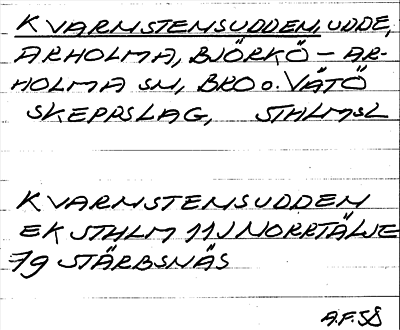 KVARNSTENSUDDEN, UDDE,
ARHOLMA, BJÖRKÖ - AR-
HOLMA SN, BRO o. VÄTÖ
SKEPPSLAG, STHLMSL
KVARNSTENSUDDEN
EK STHLM 11J NORRTÄLJE
79 STÄRBSNÄS
A.F. 58